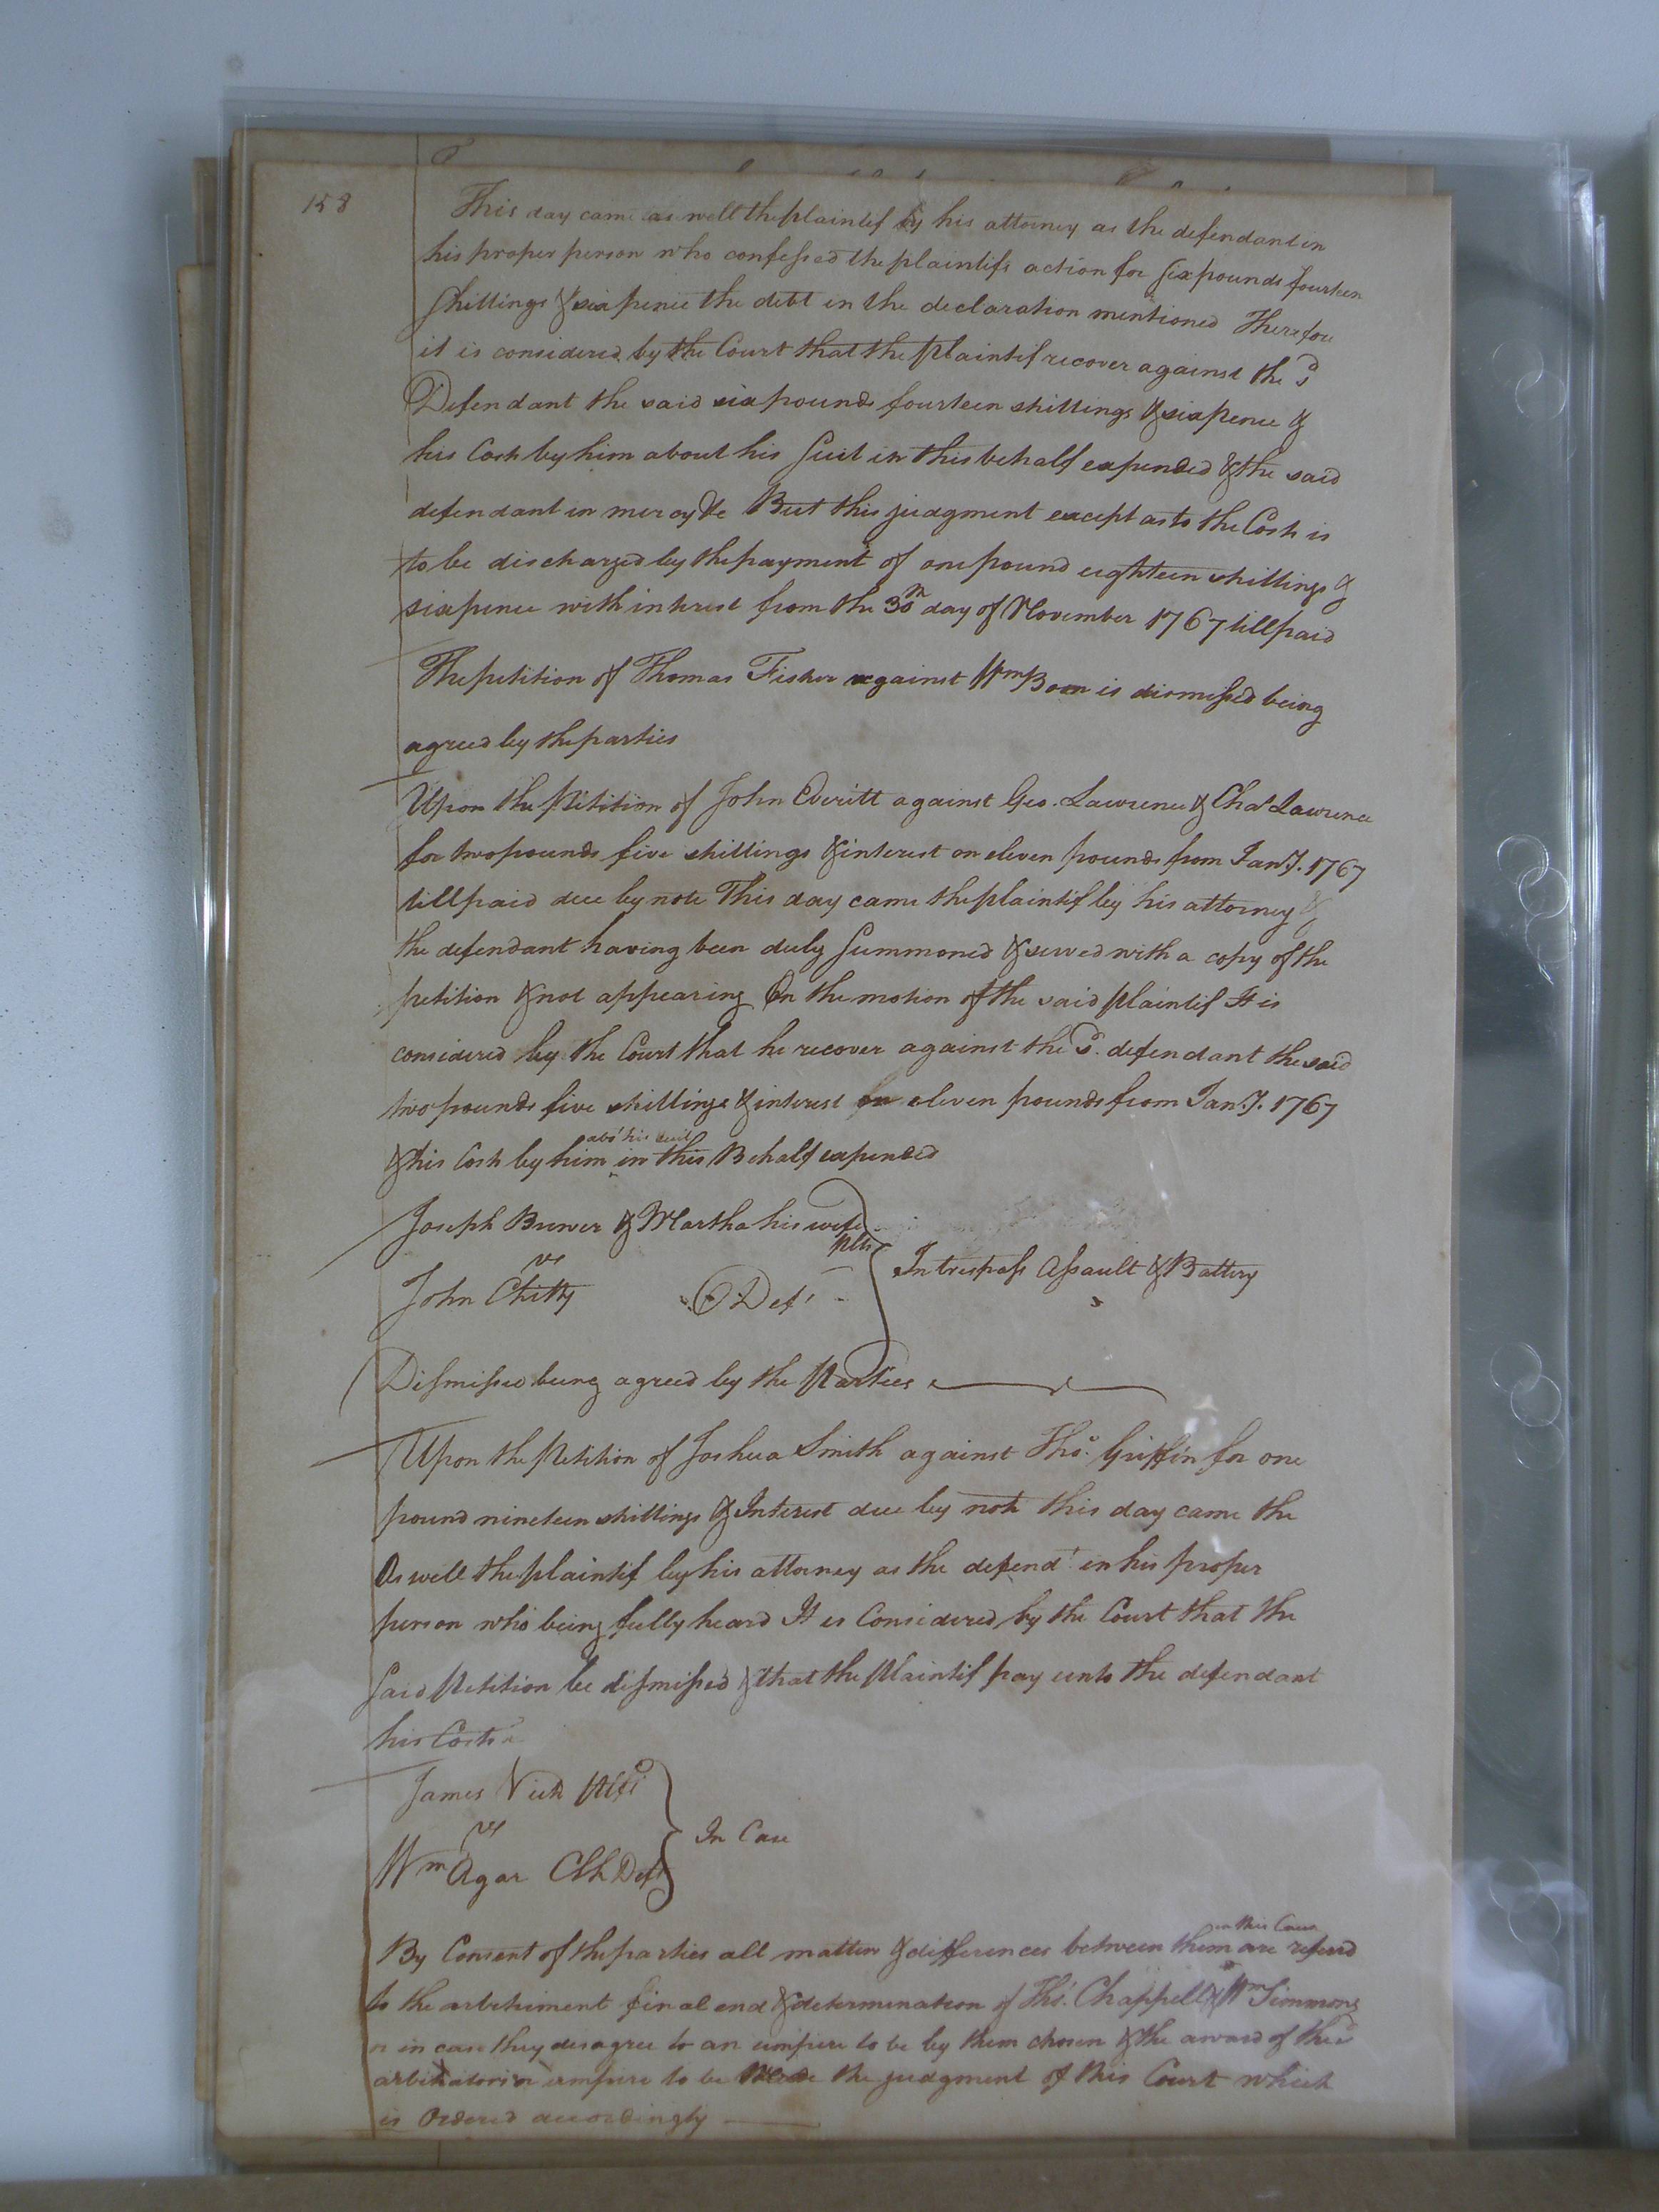 158
This day came as well the plaintif by his attorney as the defendant in
his proper person who confessed the plaintifs action for Six pounds fourteen
Shillings & sixpence the debt in the declaration mentioned Therefore
it is considered by the Court that the plaintif recover against the sd
Defendant the said six pounds fourteen shillings & sixpence &
his Costs by him about his Suit in this behalf expended & the said
defendant in mercy &c But this judgment except as to the Costs is
to be discharged by the payment of one pound eighteen shillings &
sixpence with interest from the 30th day of November 1767 till paid
The petition of Thomas Fisher against Wm Boon is dismissed being
agreed by the parties
Upon the Petition of John Everitt against Geo. Lawrence & Chas Lawrence
for two pounds five shillings & interest on eleven pounds from Jany. 1767
till paid due by note This day came the plaintif by his attorney &
the defendant having been duly Summoned & served with a copy of the
petition & not appearing On the motion of the said plaintif It is
considered by the Court that he recover against the sd. defendant the said
two pounds five shillings & interest on eleven pounds from Jany. 1767
& his Costs by him abt his suit in this Behalf expended
Joseph Brewer & Martha his wife plts
vs
John Chitty Deft
In trespass Assault & Battery
Dismissed being agreed by the Parties
Upon the Petition of Joshua Smith against Thos. Griffin for one
pound nineteen shillings & Interest due by note this day came the
As well the plaintif by his attorney as the defendt in his proper
person who being fully heard It is Considered by the Court that the
Said Petition be dismissed & that the Plaintif pay unto the defendant
his Costs
James Vick Pltf
vs
Wm Agar Clk Deft
In Case
By Consent of the parties all matters & differences between them in this Cause are referred
to the arbitriment final end & determination of Thos. Chappell & Wm Simmons
or in case they disagree to an umpire to be by them chosen & the award of the sd
arbitators or umpire to be Made the judgment of this Court which
is Ordered accordingly